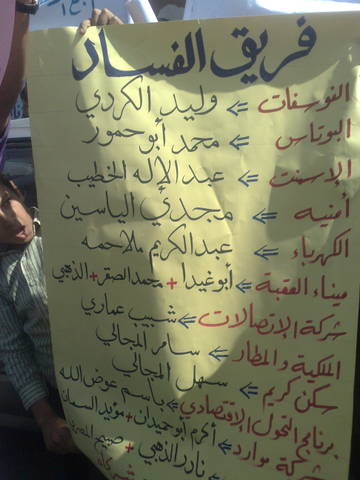 فريق الفساد
الفوسفات ⇐ وليد الكردي
البوتاس ⇐ محمد أبو حمور
الإسمنت ⇐ عبد الإله الخطيب
أمنيه ⇐ مجدي الياسين
الكهرباء ⇐ عبدالكريم ملاحمه
ميناء العقبة ⇐ أبوغيدا + محمد الصقر + الذهبي
شركة الإتصالات ⇐ شبيب عماري
الملكية والمطار ⇐ سامر المجالي
سكن كريم ⇐ سهل المجالي
برنامج التحول الإقتصادي ⇐ باسم عوض الله
شركة موارد ⇐ أكرم أبو حميدان + مؤيد السمان
+ نادر الذهبي + صبيح المصري